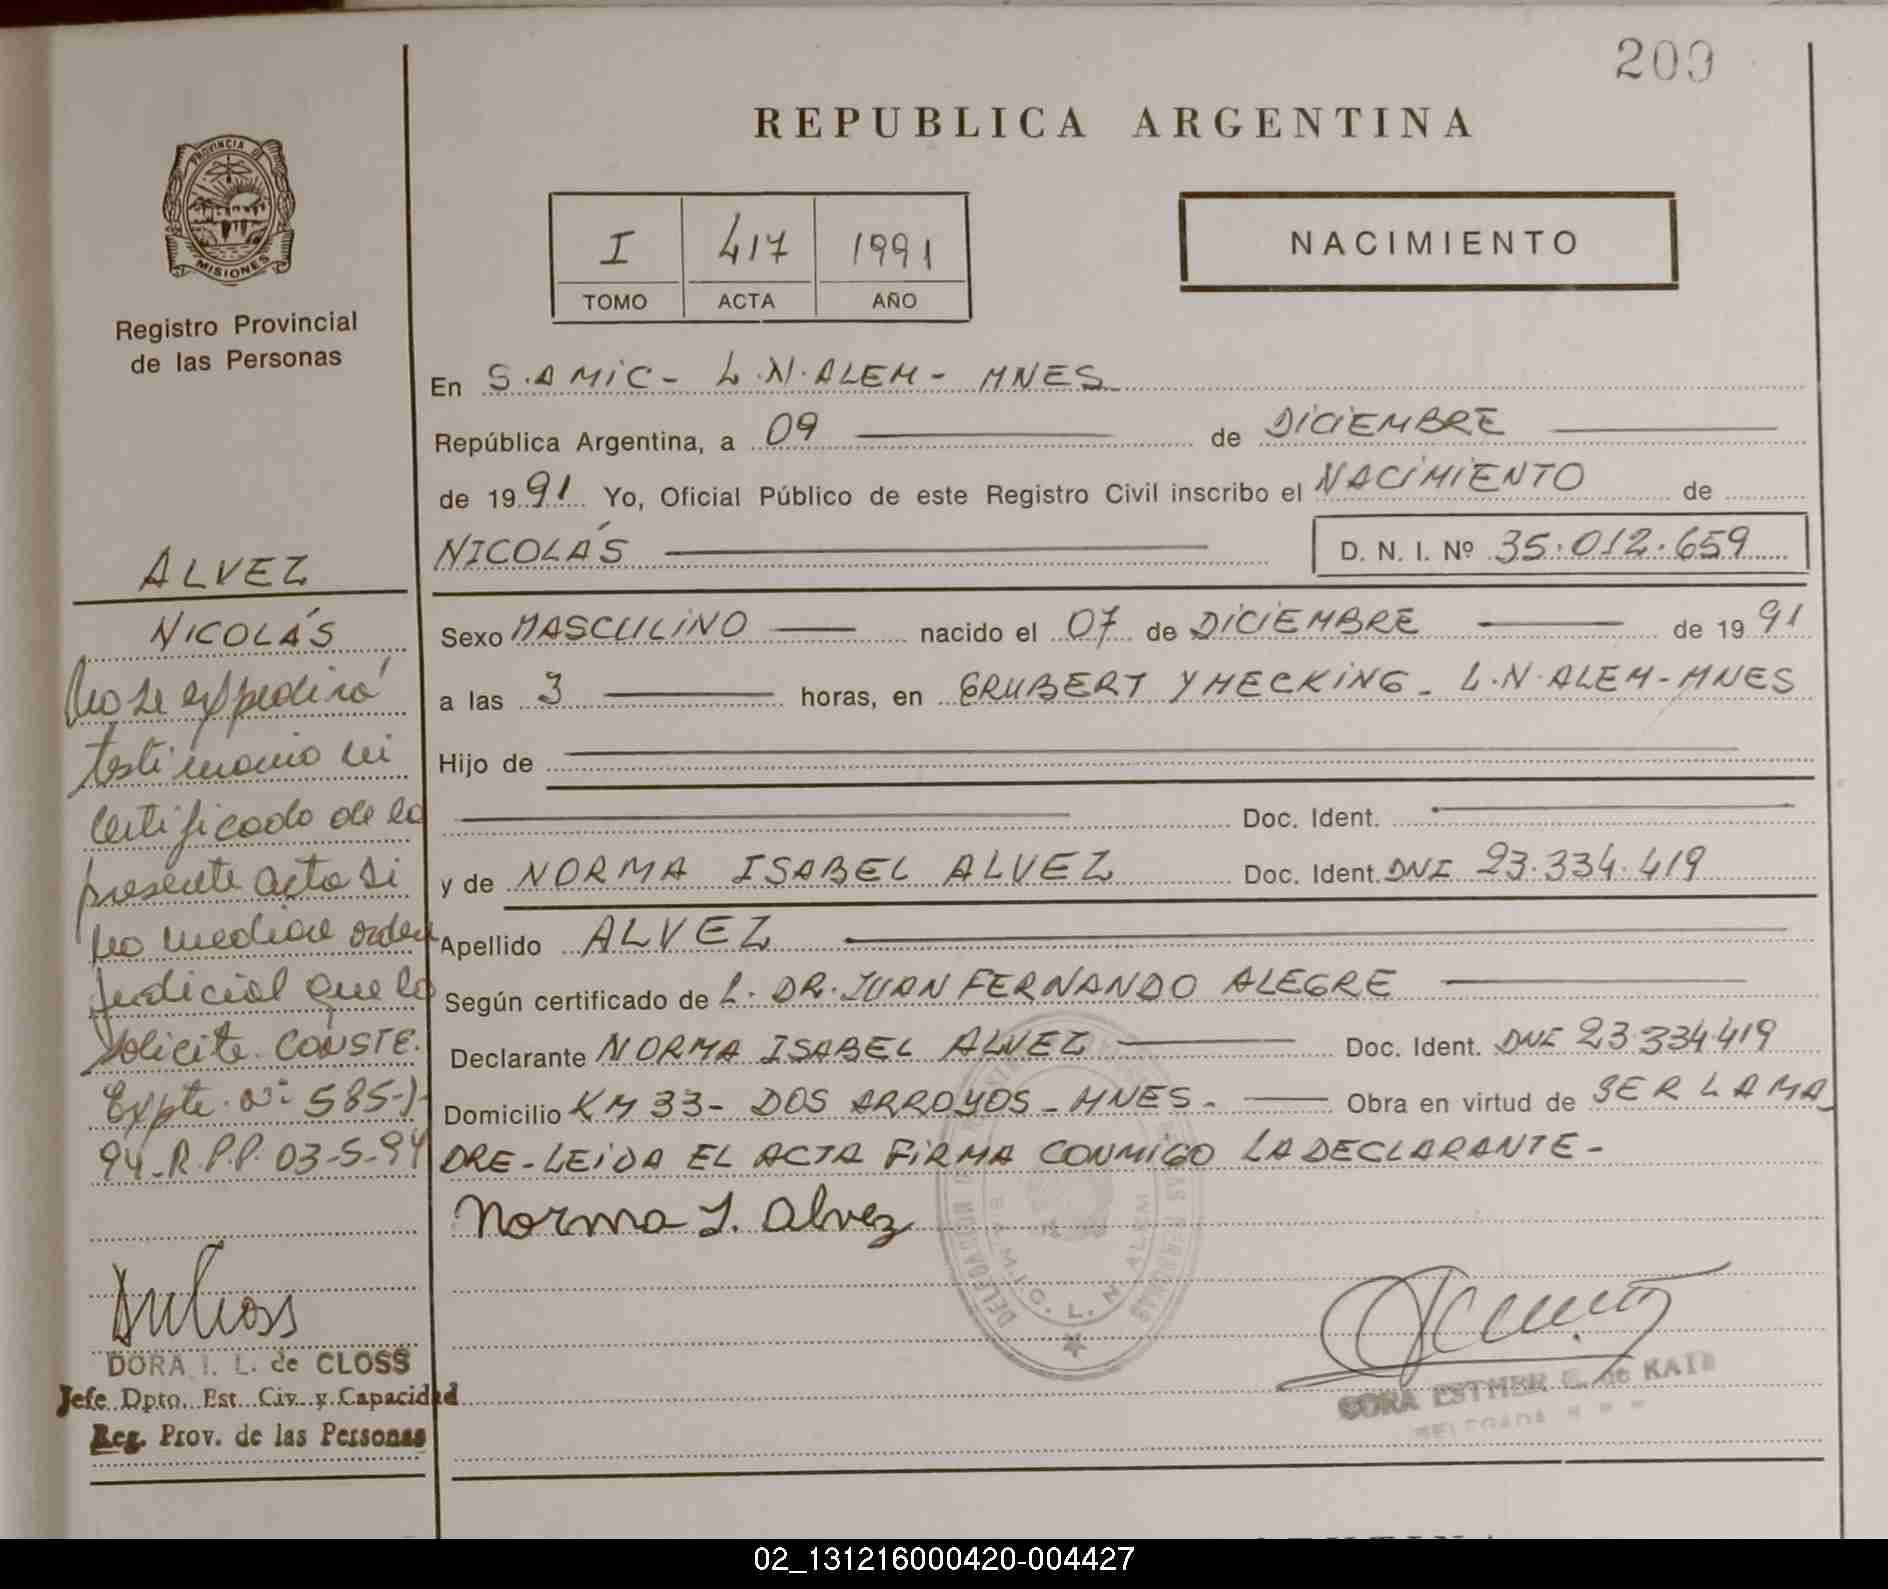 200
REPUBLICA ARGENTINA
PROVINCIA DE
MISIONES
Registro Provincial
de las Personas
I 417 1991
TOMO ACTA AÑO
NACIMIENTO
En S.AMIC- L.N.ALEM- MNES
República Argentina, a 09 de DICIEMBRE
de 1991 Yo, Oficial Público de este Registro Civil inscribo el NACIMIENTO de
NICOLÁS D. N. I. Nº 35.012.659
Sexo MASCULINO nacido el 07 de DICIEMBRE de 1991
a las 3 horas, en GRUBERT Y HECKING- L.N.ALEM-MNES
Hijo de
Doc. Ident.
y de NORMA ISABEL ALVEZ Doc. Ident. DNI 23.334.419
Apellido ALVEZ
Según certificado de L. DR. JUAN FERNANDO ALEGRE
Declarante NORMA ISABEL ALVEZ Doc. Ident. DNI 23.334.419
Domicilio KM 33- DOS ARROYOS- MNES- Obra en virtud de SER LA MA
DRE-LEIDA EL ACTA FIRMA CONMIGO LA DECLARANTE-
Norma I. Alvez
ALVEZ
NICOLÁS
No se expedirá
testimonio ni
certificado de la
presente acta si
no mediare orden
judicial que lo
solicite. CONSTE.
Expte. Nº: 585-J-
94-R.P.P. 03-5-94
DORA I. L. de CLOSS
Jefe Dpto. Est. Civ. y Capacidad
Reg. Prov. de las Personas
L. N. ALEM
ESTHER de KAIB
DELEGADA
02_131216000420-004427